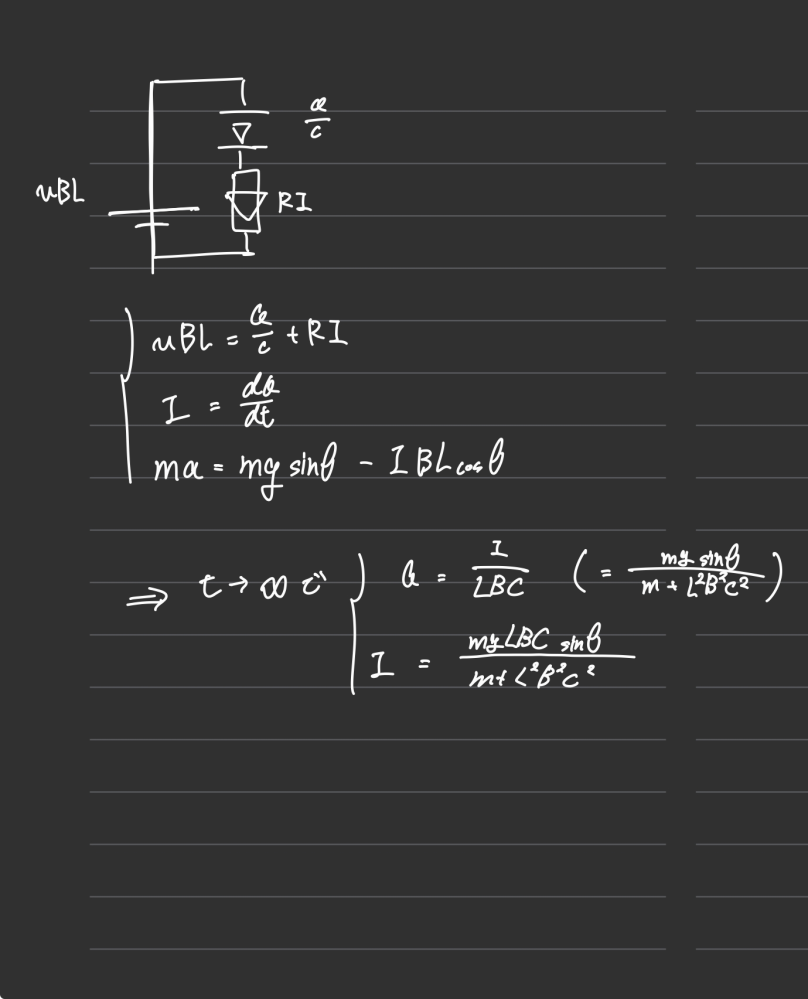 Q/C
uBL
RI
uBL = Q/C + RI
I = dQ/dt
ma = mg sinθ - IBL cosθ
⇒ t → ∞ で a = I/LBC (= mg sinθ/m + L²B²C²)
I = mgLBC sinθ/m + L²B²C²